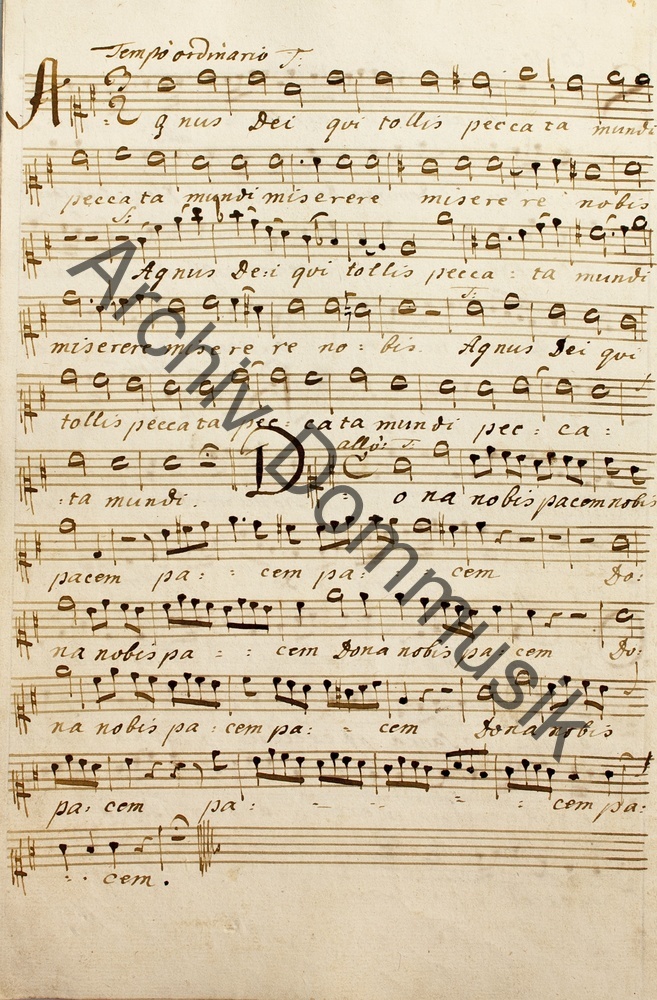 Tempo ordinario T:
Agnus Dei qui tollis peccata mundi
peccata mundi miserere miserere re nobis
T:
Agnus De:i qui tollis pecca : ta mundi
miserere misere re re no : bis. Agnus Dei qui
tollis peccata ta pec : cata mundi pec : ca :
:ta mundi. Dona nobis pacem nobis
allo: T:
pacem pa : : cem pa : cem Do:
na nobis pa : : cem Dona nobis pa: cem Do:
na nobis pa : cem pa : : cem Dona nobis
pa: cem pa : - - - - cem pa:
: . cem .
Archiv Dommusik